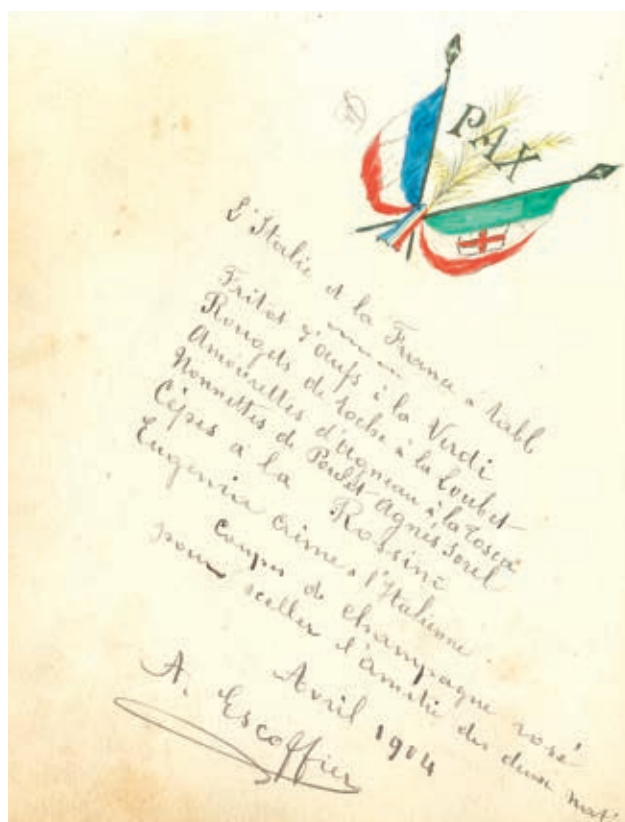 PAX
L'Italie et la France à tabl
Frites d'œufs à la Verdi
Rougets de roche à la Loubet
Amourettes d'Agneau à la Tosca
Nonnettes de Poulet Agnès Sorel
Cèpes à la Rossini
Eugenia crème à l'Italienne
Coupes de Champagne rosé
pour sceller l'amitié des deux nat
Avril 1904
A. Escoffier